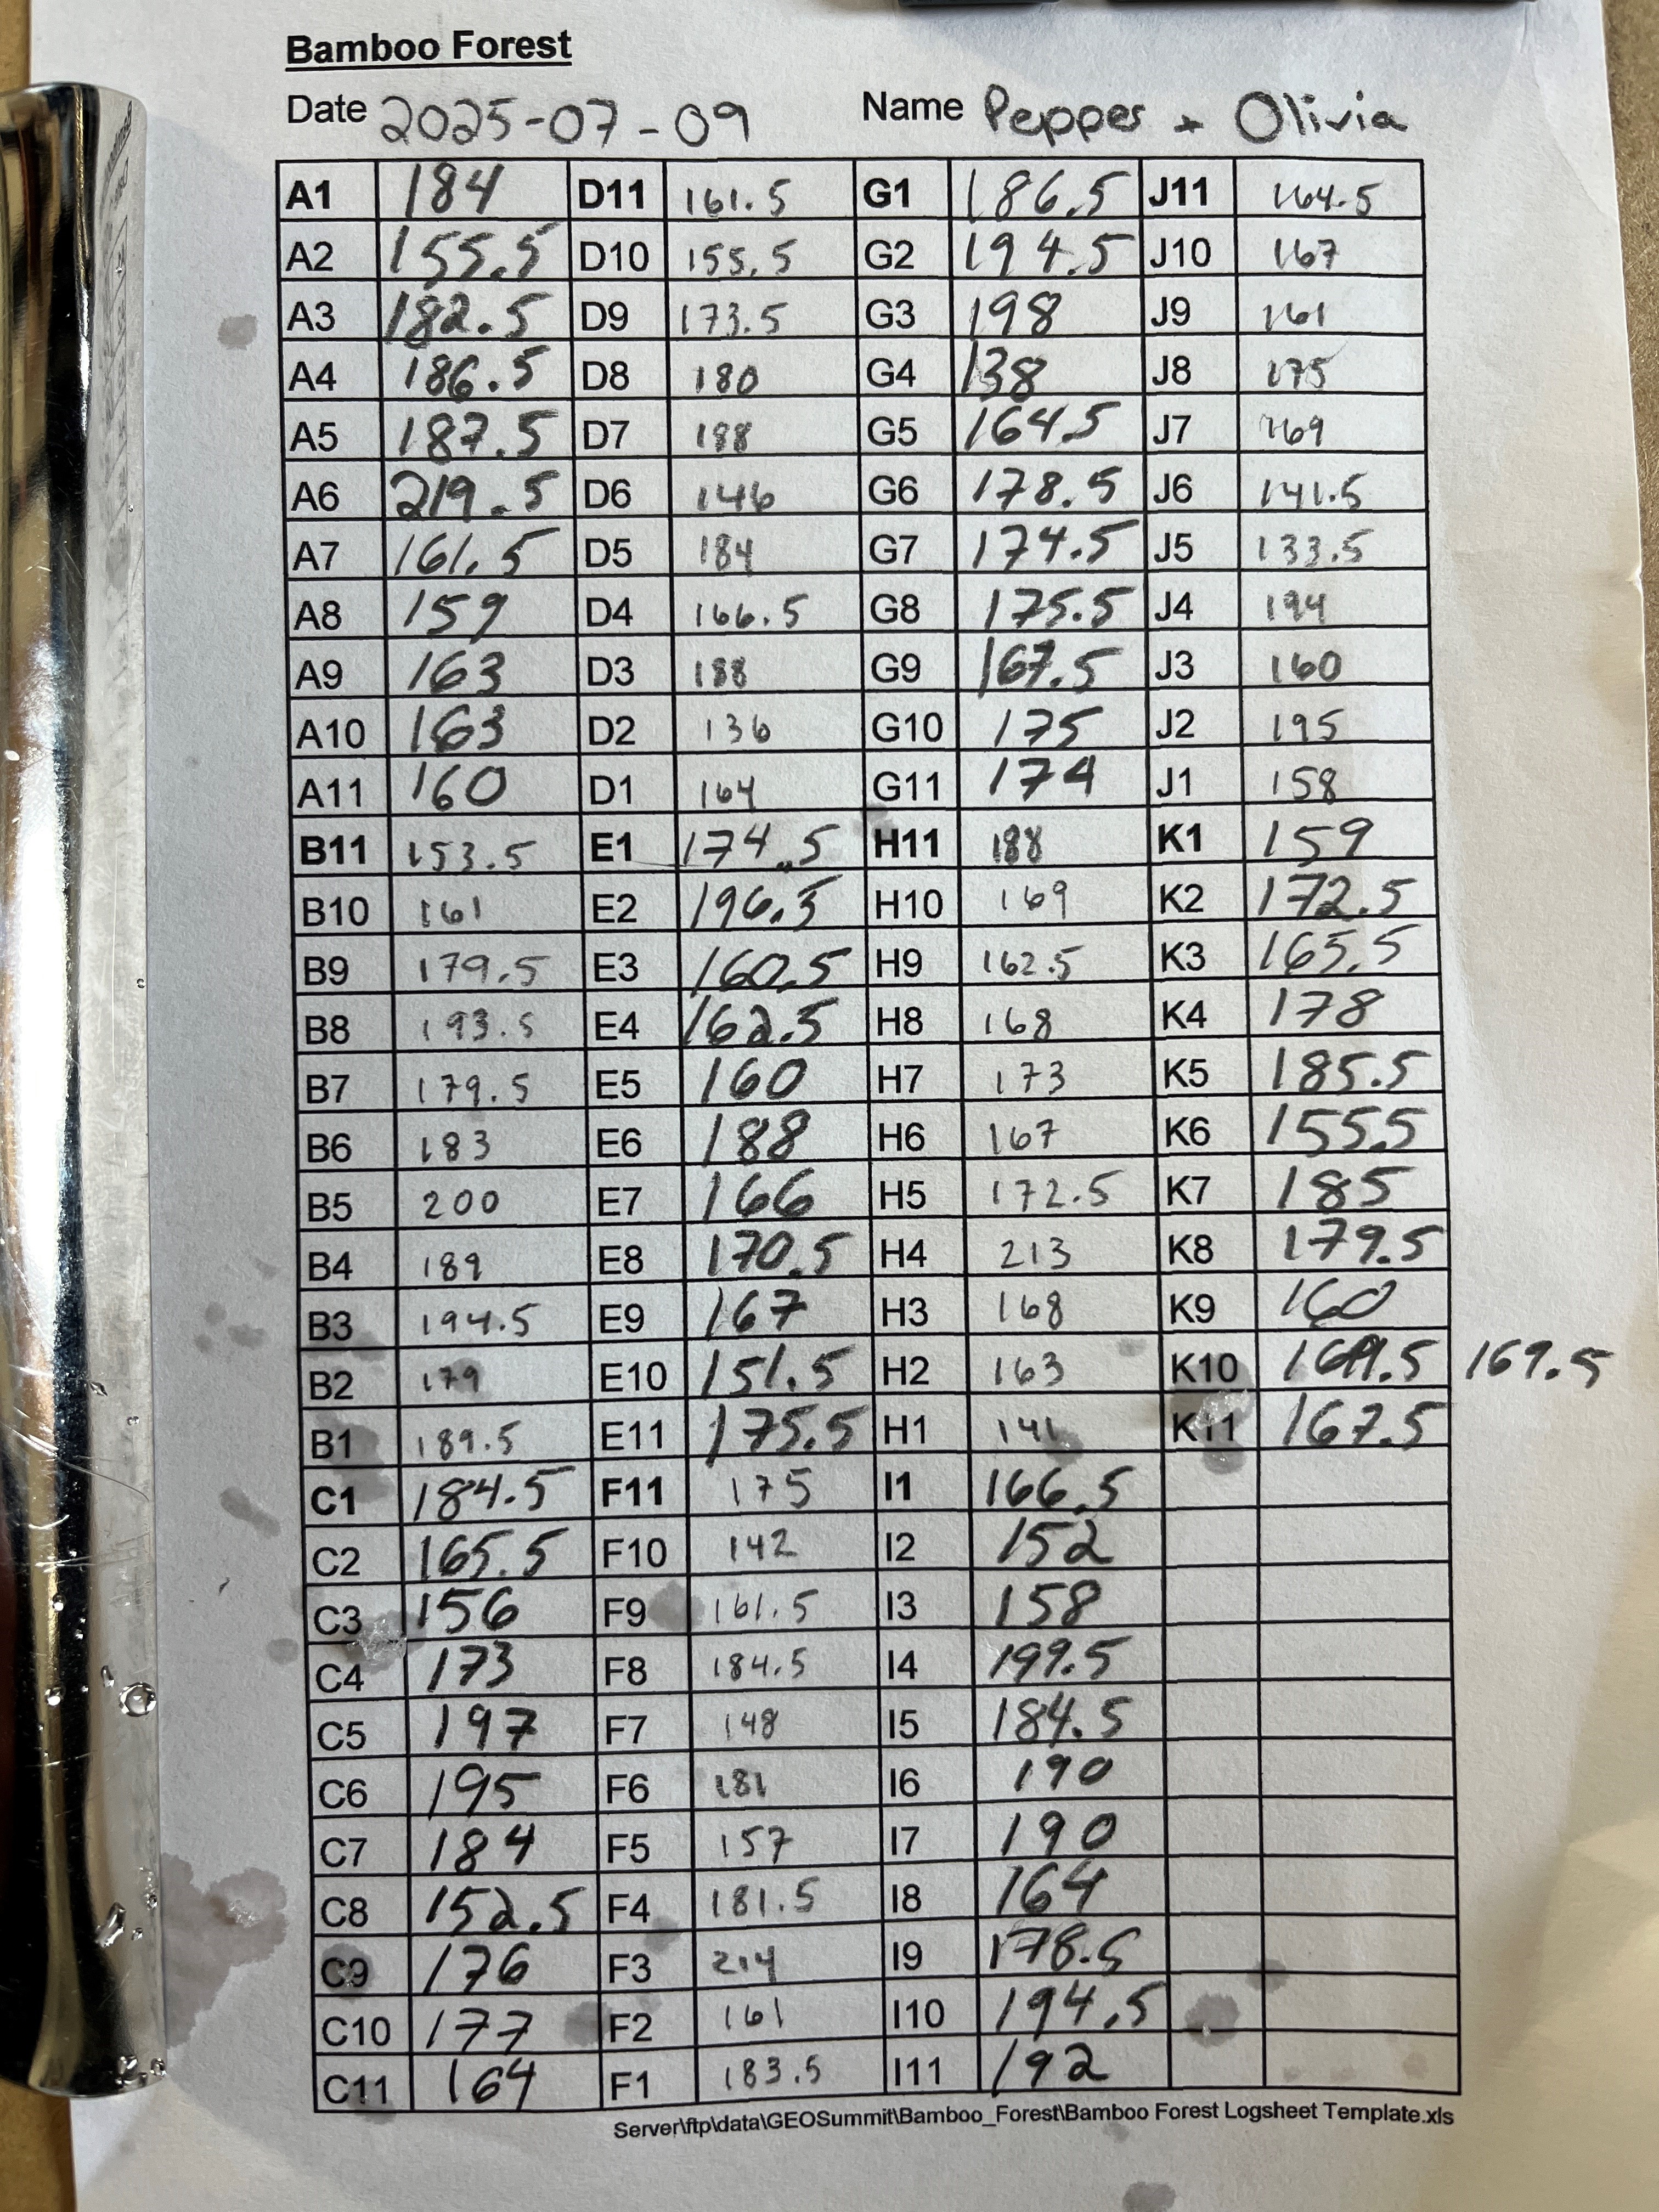 Bamboo Forest
Date 2025-07-09 Name Pepper + Olivia
A1 184 D11 161.5 G1 186.5 J11 164.5
A2 155.5 D10 155.5 G2 194.5 J10 167
A3 182.5 D9 173.5 G3 198 J9 161
A4 186.5 D8 180 G4 138 J8 175
A5 187.5 D7 188 G5 164.5 J7 169
A6 219.5 D6 146 G6 178.5 J6 141.5
A7 161.5 D5 184 G7 174.5 J5 133.5
A8 159 D4 166.5 G8 175.5 J4 194
A9 163 D3 188 G9 167.5 J3 160
A10 163 D2 136 G10 175 J2 195
A11 160 D1 164 G11 174 J1 158
B11 153.5 E1 174.5 H11 188 K1 159
B10 161 E2 196.5 H10 169 K2 172.5
B9 179.5 E3 160.5 H9 162.5 K3 165.5
B8 193.5 E4 162.5 H8 168 K4 178
B7 179.5 E5 160 H7 173 K5 185.5
B6 183 E6 188 H6 167 K6 155.5
B5 200 E7 166 H5 172.5 K7 185
B4 189 E8 170.5 H4 213 K8 179.5
B3 194.5 E9 167 H3 168 K9 160
B2 179 E10 151.5 H2 163 K10 169.5 169.5
B1 189.5 E11 175.5 H1 141 K11 167.5
C1 184.5 F11 175 I1 166.5
C2 165.5 F10 142 I2 152
C3 156 F9 161.5 I3 158
C4 173 F8 184.5 I4 199.5
C5 197 F7 148 I5 184.5
C6 195 F6 181 I6 190
C7 184 F5 157 I7 190
C8 152.5 F4 181.5 I8 164
C9 176 F3 214 I9 178.5
C10 177 F2 161 I10 194.5
C11 164 F1 183.5 I11 192
Server\ftp\data\GEOSummit\Bamboo_Forest\Bamboo Forest Logsheet Template.xls